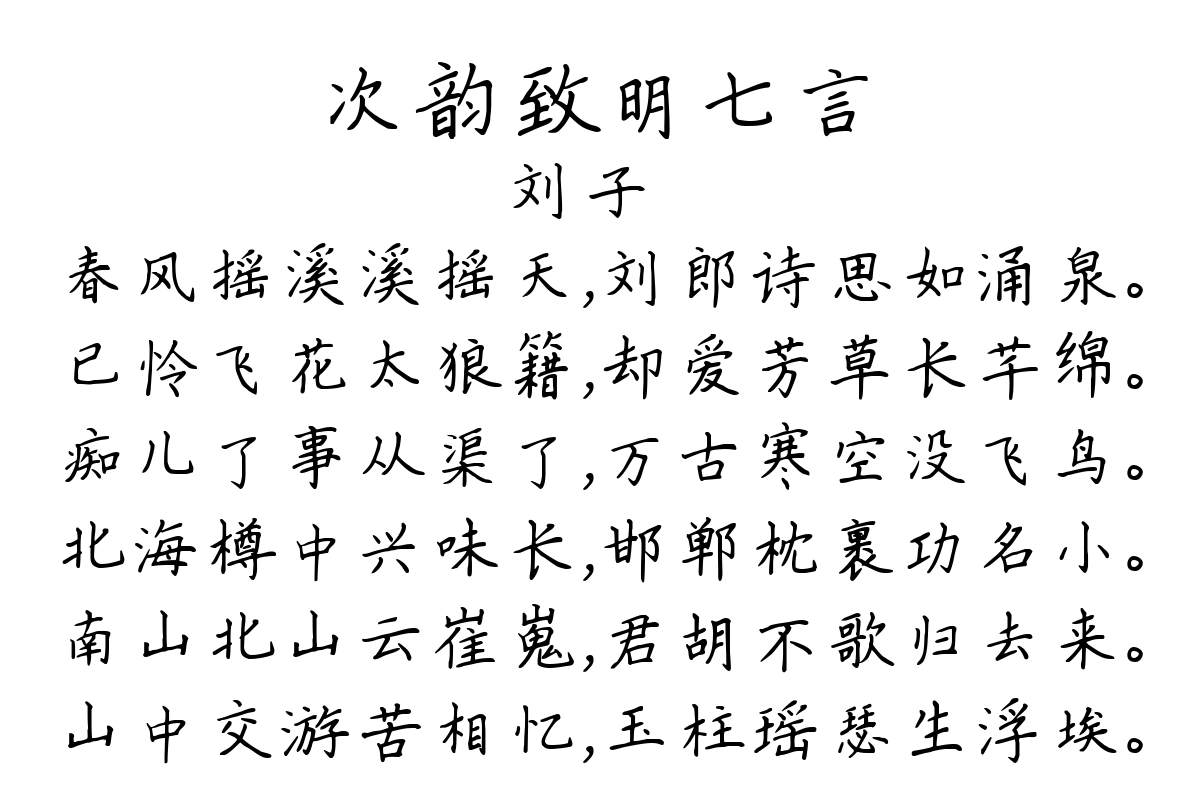 次韵致明七言
刘子
春风摇溪溪摇天,刘郎诗思如涌泉。
已怜飞花太狼籍,却爱芳草长芊绵。
痴儿了事从渠了,万古寒空没飞鸟。
北海樽中兴味长,邯郸枕裹功名小。
南山北山云崔嵬,君胡不歌归去来。
山中交游苦相忆,玉柱瑶瑟生浮埃。